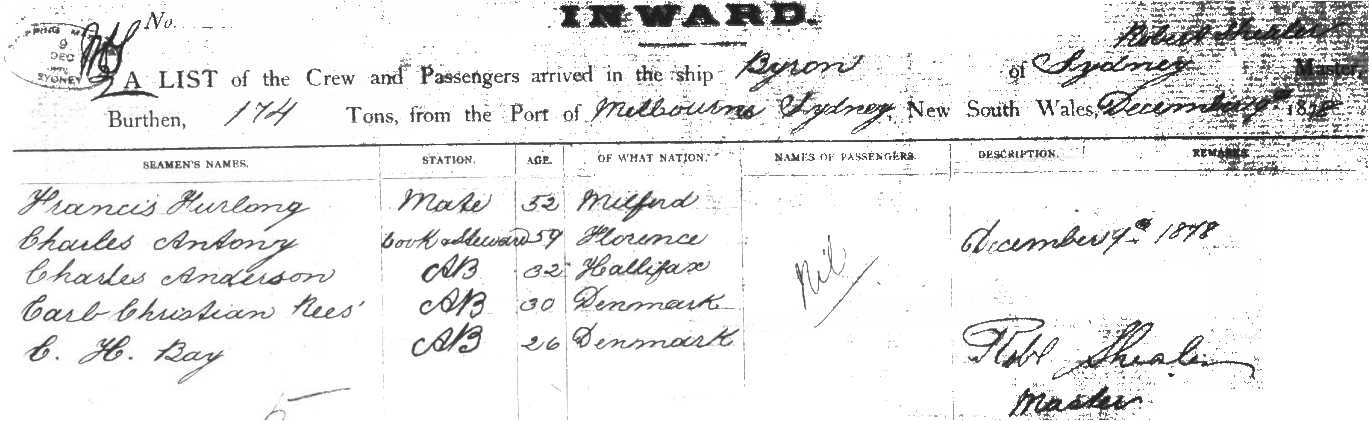 INWARD.
No.
9
DEC
SYDNEY
Robert
A LIST of the Crew and Passengers arrived in the ship Byron of Sydney Master,
Burthen, 174 Tons, from the Port of Melbourne Sydney, New South Wales, December 9th 1878
SEAMEN'S NAMES. STATION. AGE. OF WHAT NATION. NAMES OF PASSENGERS. DESCRIPTION. REMARKS
Francis Furlong Mate 52 Milford
Charles Antony Cook & Steward 59 Florence December 9th 1878
Charles Anderson AB 32 Hallifax Nil
Carl Christian Rees AB 30 Denmark
C. H. Bay AB 26 Denmark
Robt
Master
5